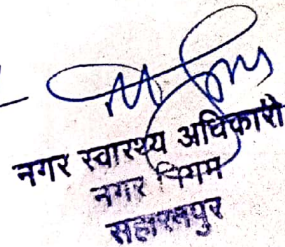 नगर स्वास्थ्य अधिकारी
नगर निगम
सहारनपुर